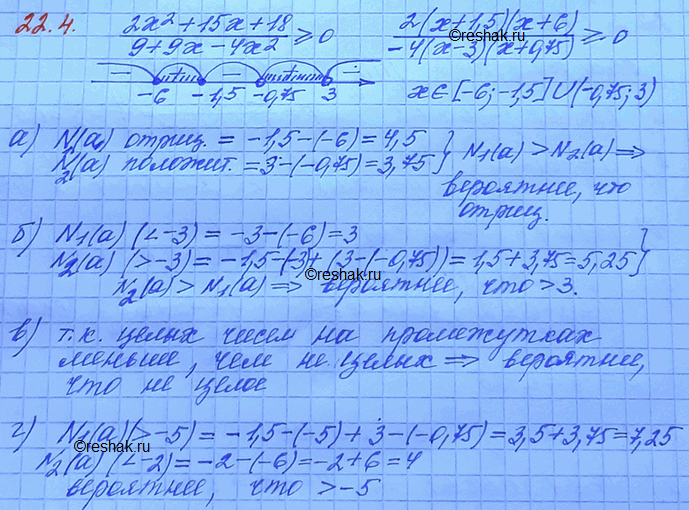 22.4. (2x² + 15x + 18)/(9 + 9x - 4x²) ≥ 0   (2(x+1,5)(x+6))/(-4(x-3)(x+0,75)) ≥ 0
- + - + -
-6 -1,5 -0,75 3   x ∈ [-6; -1,5] ∪ (-0,75; 3)
а) N₁(a) отриц. = -1,5-(-6) = 4,5 } N₁(a) > N₂(a) ⇒
N₂(a) положит. = 3-(-0,75) = 3,75
вероятнее, что
отриц.
б) N₁(a) (<-3) = -3-(-6) = 3
N₂(a) (>-3) = -1,5-(-3) + (3-(-0,75)) = 1,5+3,75 = 5,25 }
©reshak.ru
N₂(a) > N₁(a) ⇒ вероятнее, что >3.
в) т.к. целых чисел на промежутках
меньше, чем не целых ⇒ вероятнее,
что не целое
г) N₁(a) (>-5) = -1,5-(-5) + 3-(-0,75) = 3,5+3,75 = 7,25
©reshak.ru
N₂(a) (<-2) = -2-(-6) = -2+6 = 4
вероятнее, что >-5